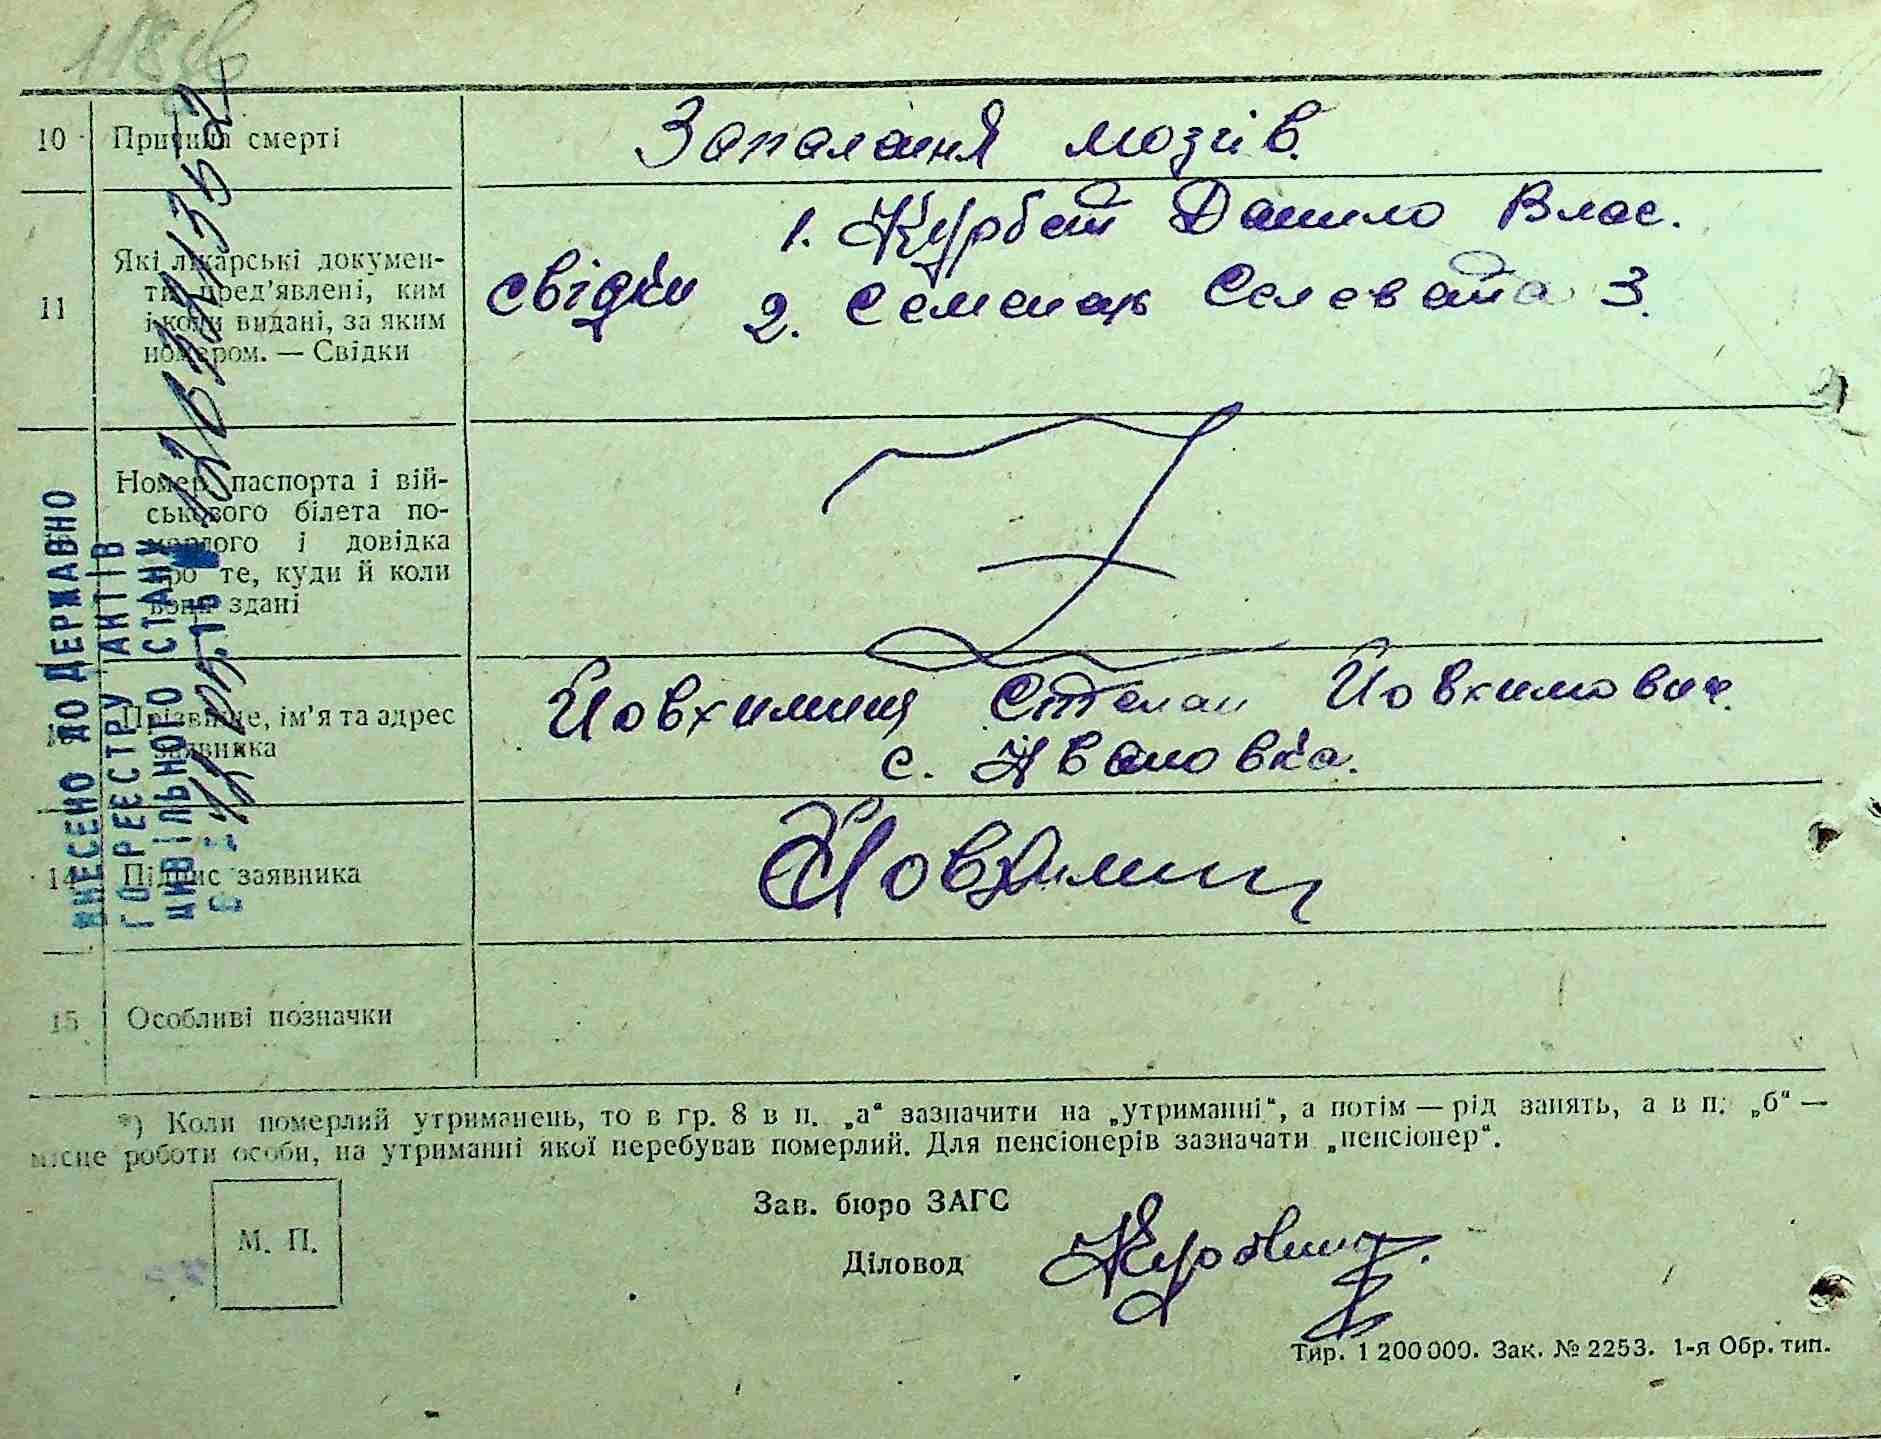 118
10 Причини смерті
Запалання мозгів.
11 Які лікарські докумен-
ти пред'явлені, ким
і коли видані, за яким
номером. — Свідки
свідки
1. Курбат Данило Влас.
2. Семенюк Селевата З.
Номер паспорта і вій-
ськового білета по-
мерлого і довідка
про те, куди й коли
вони здані
Прізвище, ім'я та адрес
заявника
Йовхимиц Степан Йовхимович.
с. Ивановка.
14 Підпис заявника
Йовхимиц
15 Особливі позначки
*) Коли померлий утриманець, то в гр. 8 в п. „а“ зазначити на „утриманні“, а потім — рід занять, а в п. „б“ —
місце роботи особи, на утриманні якої перебував померлий. Для пенсіонерів зазначати „пенсіонер“.
М. П.
Зав. бюро ЗАГС
Діловод
Тир. 1 200 000. Зак. № 2253. 1-я Обр. тип.
ВНЕСЕНО ДО ДЕРЖАВНО
ГО РЕЄСТРУ АКТІВ
ЦИВІЛЬНОГО СТАНУ